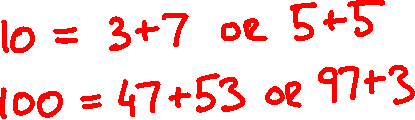 10 = 3+7 or 5+5
100 = 47+53 or 97+3